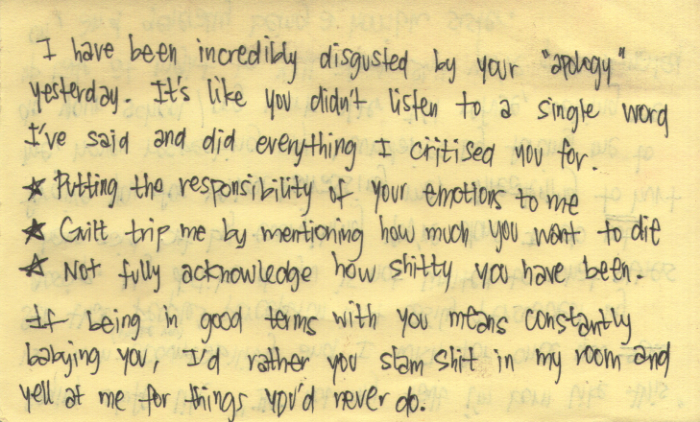 I have been incredibly disgusted by your "apology"
yesterday. It's like you didn't listen to a single word
I've said and did everything I critised you for.
★ Putting the responsibility of your emotions to me
★ Guilt trip me by mentioning how much you want to die
★ Not fully acknowledge how shitty you have been.
If being in good terms with you means constantly
babying you, I'd rather you slam shit in my room and
yell at me for things you'd never do.